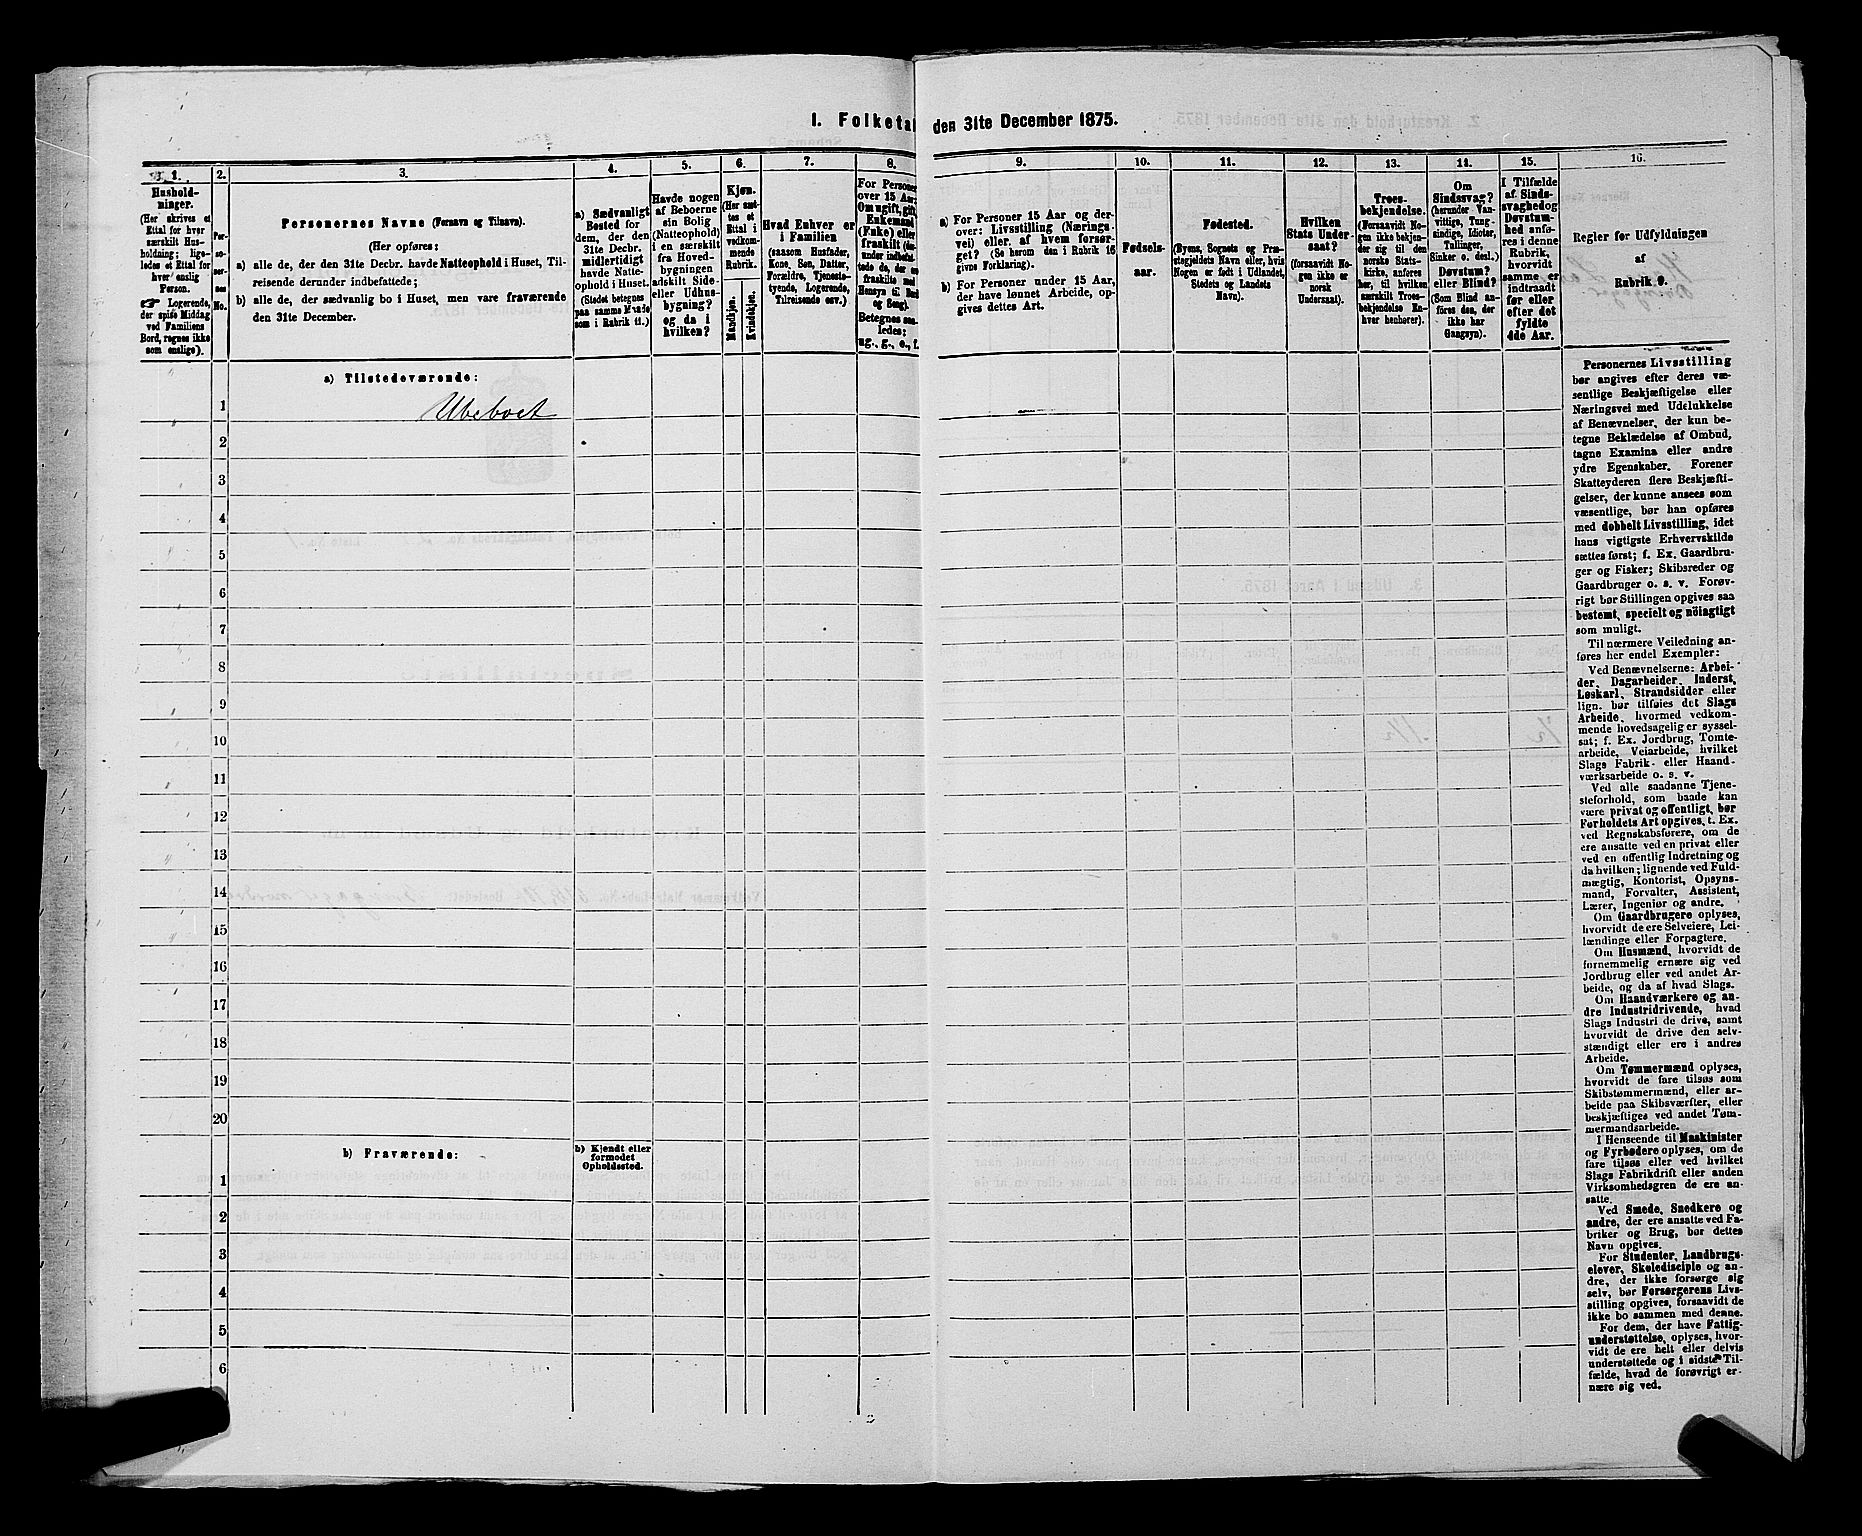 I. Folketæ den 31te December 1875.
1.
Hushold-
ninger.
(Her skrives et
Ettal for hver
særskilt Hus-
holdning; lige-
ledes et Ettal for
hver enslig
Person.
☞ Logerende,
der spise Middag
ved Familiens
Bord, regnes ikke
som enslige).
2.
Per-
so-
ner-
nes
No.
3.
Personernes Navne (Fornavn og Tilnavn).
(Her opføres:
a) alle de, der den 31te Decbr. havde Natteophold i Huset, Til-
reisende derunder indbefattede;
b) alle de, der sædvanlig bo i Huset, men vare fraværende
den 31te December.
4.
a) Sædvanligt
Bosted for
dem, der den
31te Decbr.
midlertidigt
havde Natte-
ophold i Huset.
(Stedet betegnes
paa samme Maade
som i Rubrik 11.)
5.
Havde nogen
af Beboerne
sin Bolig
(Natteophold)
i en særskilt
fra Hoved-
bygningen
adskilt Side-
eller Udhus-
bygning?
og da i
hvilken?
6.
Kjøn.
(Her sæt-
tes et
Ettal i
vedkom-
mende
Rubrik.
Mandkjøn.
Kvindekjøn.
7.
Hvad Enhver er
i Familien
(saasom Husfader,
Kone, Søn, Datter,
Forældre, Tjeneste-
tyende, Logerende,
Tilreisende osv.)
8.
For Personer
over 15 Aar:
Om ugift, gift,
Enkemand
(Enke) eller
fraskilt
Betegnes saa-
ledes:
ug., g., e., f.
9.
a) For Personer 15 Aar og der-
over: Livsstilling (Nærings-
vei) eller af hvem forsør-
get? (Se herom den i Rubrik 16
givne Forklaring).
b) For Personer under 15 Aar,
der have lønnet Arbeide, op-
gives dettes Art.
10.
Fødsels-
aar.
11.
Fødested.
(Byens, Sognets og Præ-
stegjeldets Navn eller, hvis
Nogen er født i Udlandet,
Stedets og Landets
Navn).
12.
Hvilken
Stats Under-
saat?
(forsaavidt No-
gen ikke er
norsk
Undersaat).
13.
Troes-
bekjendelse.
(Forsaavidt No-
gen ikke bekjen-
der sig til den
norske Stats-
kirke, anføres
her, til hvilken
særskilt Troes-
bekjendelse En-
hver henhører).
14.
Om
Sindssvag?
(herunder Van-
vittige, Tung-
sindige, Idioter,
Tullinger,
Sinker o. desl.)
Døvstum?
eller Blind?
(Som Blind an-
føres den, der
ikke har
Gangsyn).
15.
I Tilfælde
af Sinds-
svaghed og
Døvstum-
hed anfø-
res i denne
Rubrik,
hvorvidt
samme er
indtraadt
før eller
efter det
fyldte
4de Aar.
16.
Regler for Udfyldningen
af
Rubrik 9.
a) Tilstedeværende:
1 Ubeboet
2
3
4
5
6
7
8
9
10
11
12
13
14
15
16
17
18
19
20
b) Fraværende:
b) Kjendt eller
formodet
Opholdssted.
1
2
3
4
5
6
Personernes Livsstilling
bør angives efter deres væ-
sentlige Beskjæftigelse eller
Næringsvei med Udelukkelse
af Benævnelser, der kun be-
tegne Beklædelse af Ombud,
tagne Examina eller andre
ydre Egenskaber. Forener
Skatteyderen flere Beskjæfti-
gelser, der kunne ansees som
væsentlige, bør han opføres
med dobbelt Livsstilling, idet
hans vigtigste Erhvervskilde
sættes først; f. Ex. Gaardbru-
ger og Fisker; Skibsreder og
Gaardbruger o. s. v. Forøv-
rigt bør Stillingen opgives saa
bestemt, specielt og nöiagtigt
som muligt.
Til nærmere Veiledning an-
føres her endel Exempler:
Ved Benævnelserne: Arbei-
der, Dagarbeider, Inderst,
Løskarl, Strandsidder eller
lign. bør tilføies det Slags
Arbeide, hvormed vedkom-
mende hovedsagelig er syssel-
sat; f. Ex. Jordbrug, Tomte-
arbeide, Veiarbeide, hvilket
Slags Fabrik- eller Haand-
værksarbeide o. s. v.
Ved alle saadanne Tjene-
steforhold, som baade kan
være privat og offentligt, bør
Forholdets Art opgives, t. Ex.
ved Regnskabsførere, om de
ere ansatte ved en privat eller
ved en offentlig Indretning og
da hvilken; lignende ved Fuld-
mægtig, Kontorist, Opsyns-
mand, Forvalter, Assistent,
Lærer, Ingeniør og andre.
Om Gaardbrugere oplyses,
hvorvidt de ere Selveiere, Lei-
lændinge eller Forpagtere.
Om Husmænd, hvorvidt de
fornemmelig ernære sig ved
Jordbrug eller ved andet Ar-
beide, og da af hvad Slags.
Om Haandværkere og an-
dre Industridrivende, hvad
Slags Industri de drive, samt
hvorvidt de drive den selv-
stændigt eller ere i andres
Arbeide.
Om Tømmermænd oplyses,
hvorvidt de fare tilsøs som
Skibstømmermænd, eller ar-
beide paa Skibsværfter, eller
beskjæftiges ved andet Tøm-
mermandsarbeide.
I Henseende til Maskinister
og Fyrbødere oplyses, om de
fare tilsøs eller ved hvilket
Slags Fabrikdrift eller anden
Virksomhedsgren de ere an-
satte.
Ved Smede, Snedkere og
andre, der ere ansatte ved Fa-
briker og Brug, bør dettes
Navn opgives.
For Studenter, Landbrugs-
elever, Skoledisciple og an-
dre, der ikke forsørge sig
selv, bør Forsørgerens Livs-
stilling opgives, forsaavidt de
ikke bo sammen med denne.
For dem, der have Fattig-
understøttelse, oplyses, hvor-
vidt de ere helt eller delvis
understøttede og i sidste Til-
fælde, hvad de forøvrigt er-
nære sig ved.